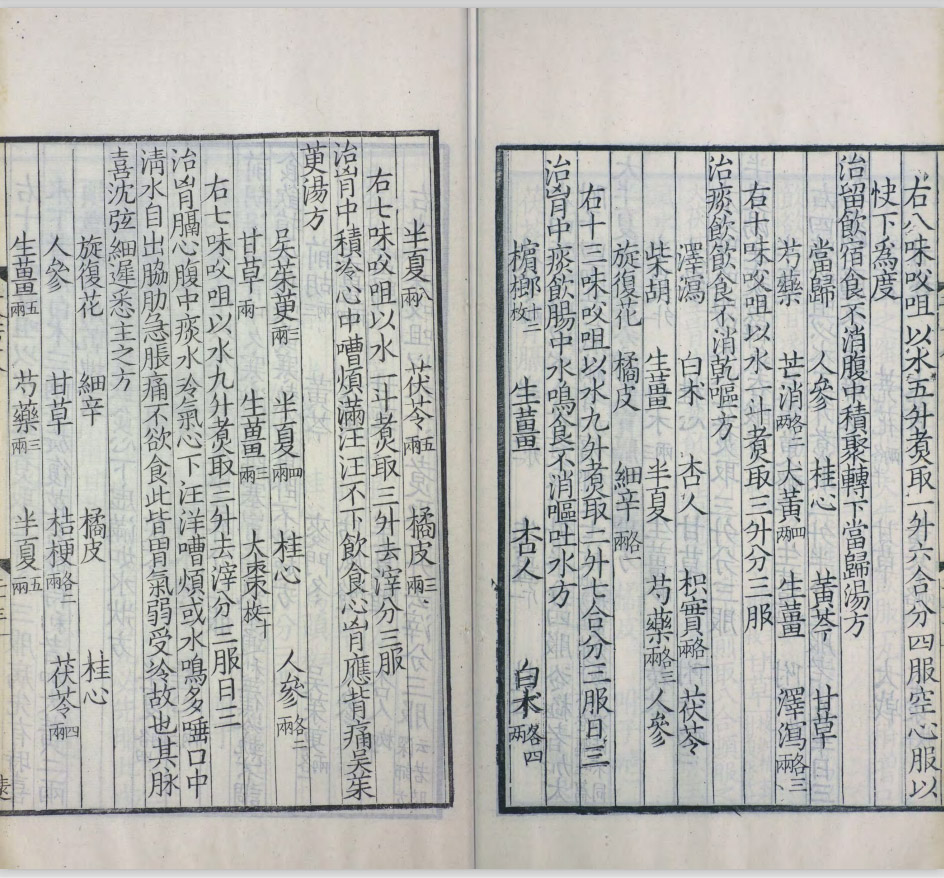 右八味㕮咀以水五升煮取一升六合分四服空心服以
快下爲度
治留飲宿食不消腹中積聚轉下當歸湯方
當歸 人參 桂心 黃芩 甘草
芍藥 芒消各二兩 大黃四兩 生薑 澤瀉各三兩
右十味㕮咀以水一斗煮取三升分三服
治痰飲飲食不消乾嘔方
澤瀉 白朮 杏人 枳實各一兩 茯苓
柴胡 生薑 半夏 芍藥各三兩 人參
旋復花 橘皮 細辛各一兩
右十三味㕮咀以水九升煮取二升七合分三服日三
治胷中痰飲腸中水鳴食不消嘔吐水方
檳榔十二枚 生薑 杏人 白朮各四兩
半夏八兩 茯苓五兩 橘皮三兩
右七味㕮咀以水一斗煮取三升去滓分三服
治胷中積冷心中嘈煩滿汪汪不下飲食心胷應背痛吳茱
萸湯方
吳茱萸三兩 半夏四兩 桂心 人參各二兩
甘草一兩 生薑三兩 大棗二十枚
右七味㕮咀以水九升煮取三升去滓分三服日三
治胷膈心腹中痰水冷氣心下汪洋嘈煩或水鳴多唾口中
清水自出脇肋急脹痛不欲食此皆胃氣弱受冷故也其脉
喜沈弦細遲悉主之方
旋復花 細辛 橘皮 桂心
人參 甘草 桔梗各二兩 茯苓四兩
生薑五兩 芍藥三兩 半夏五兩